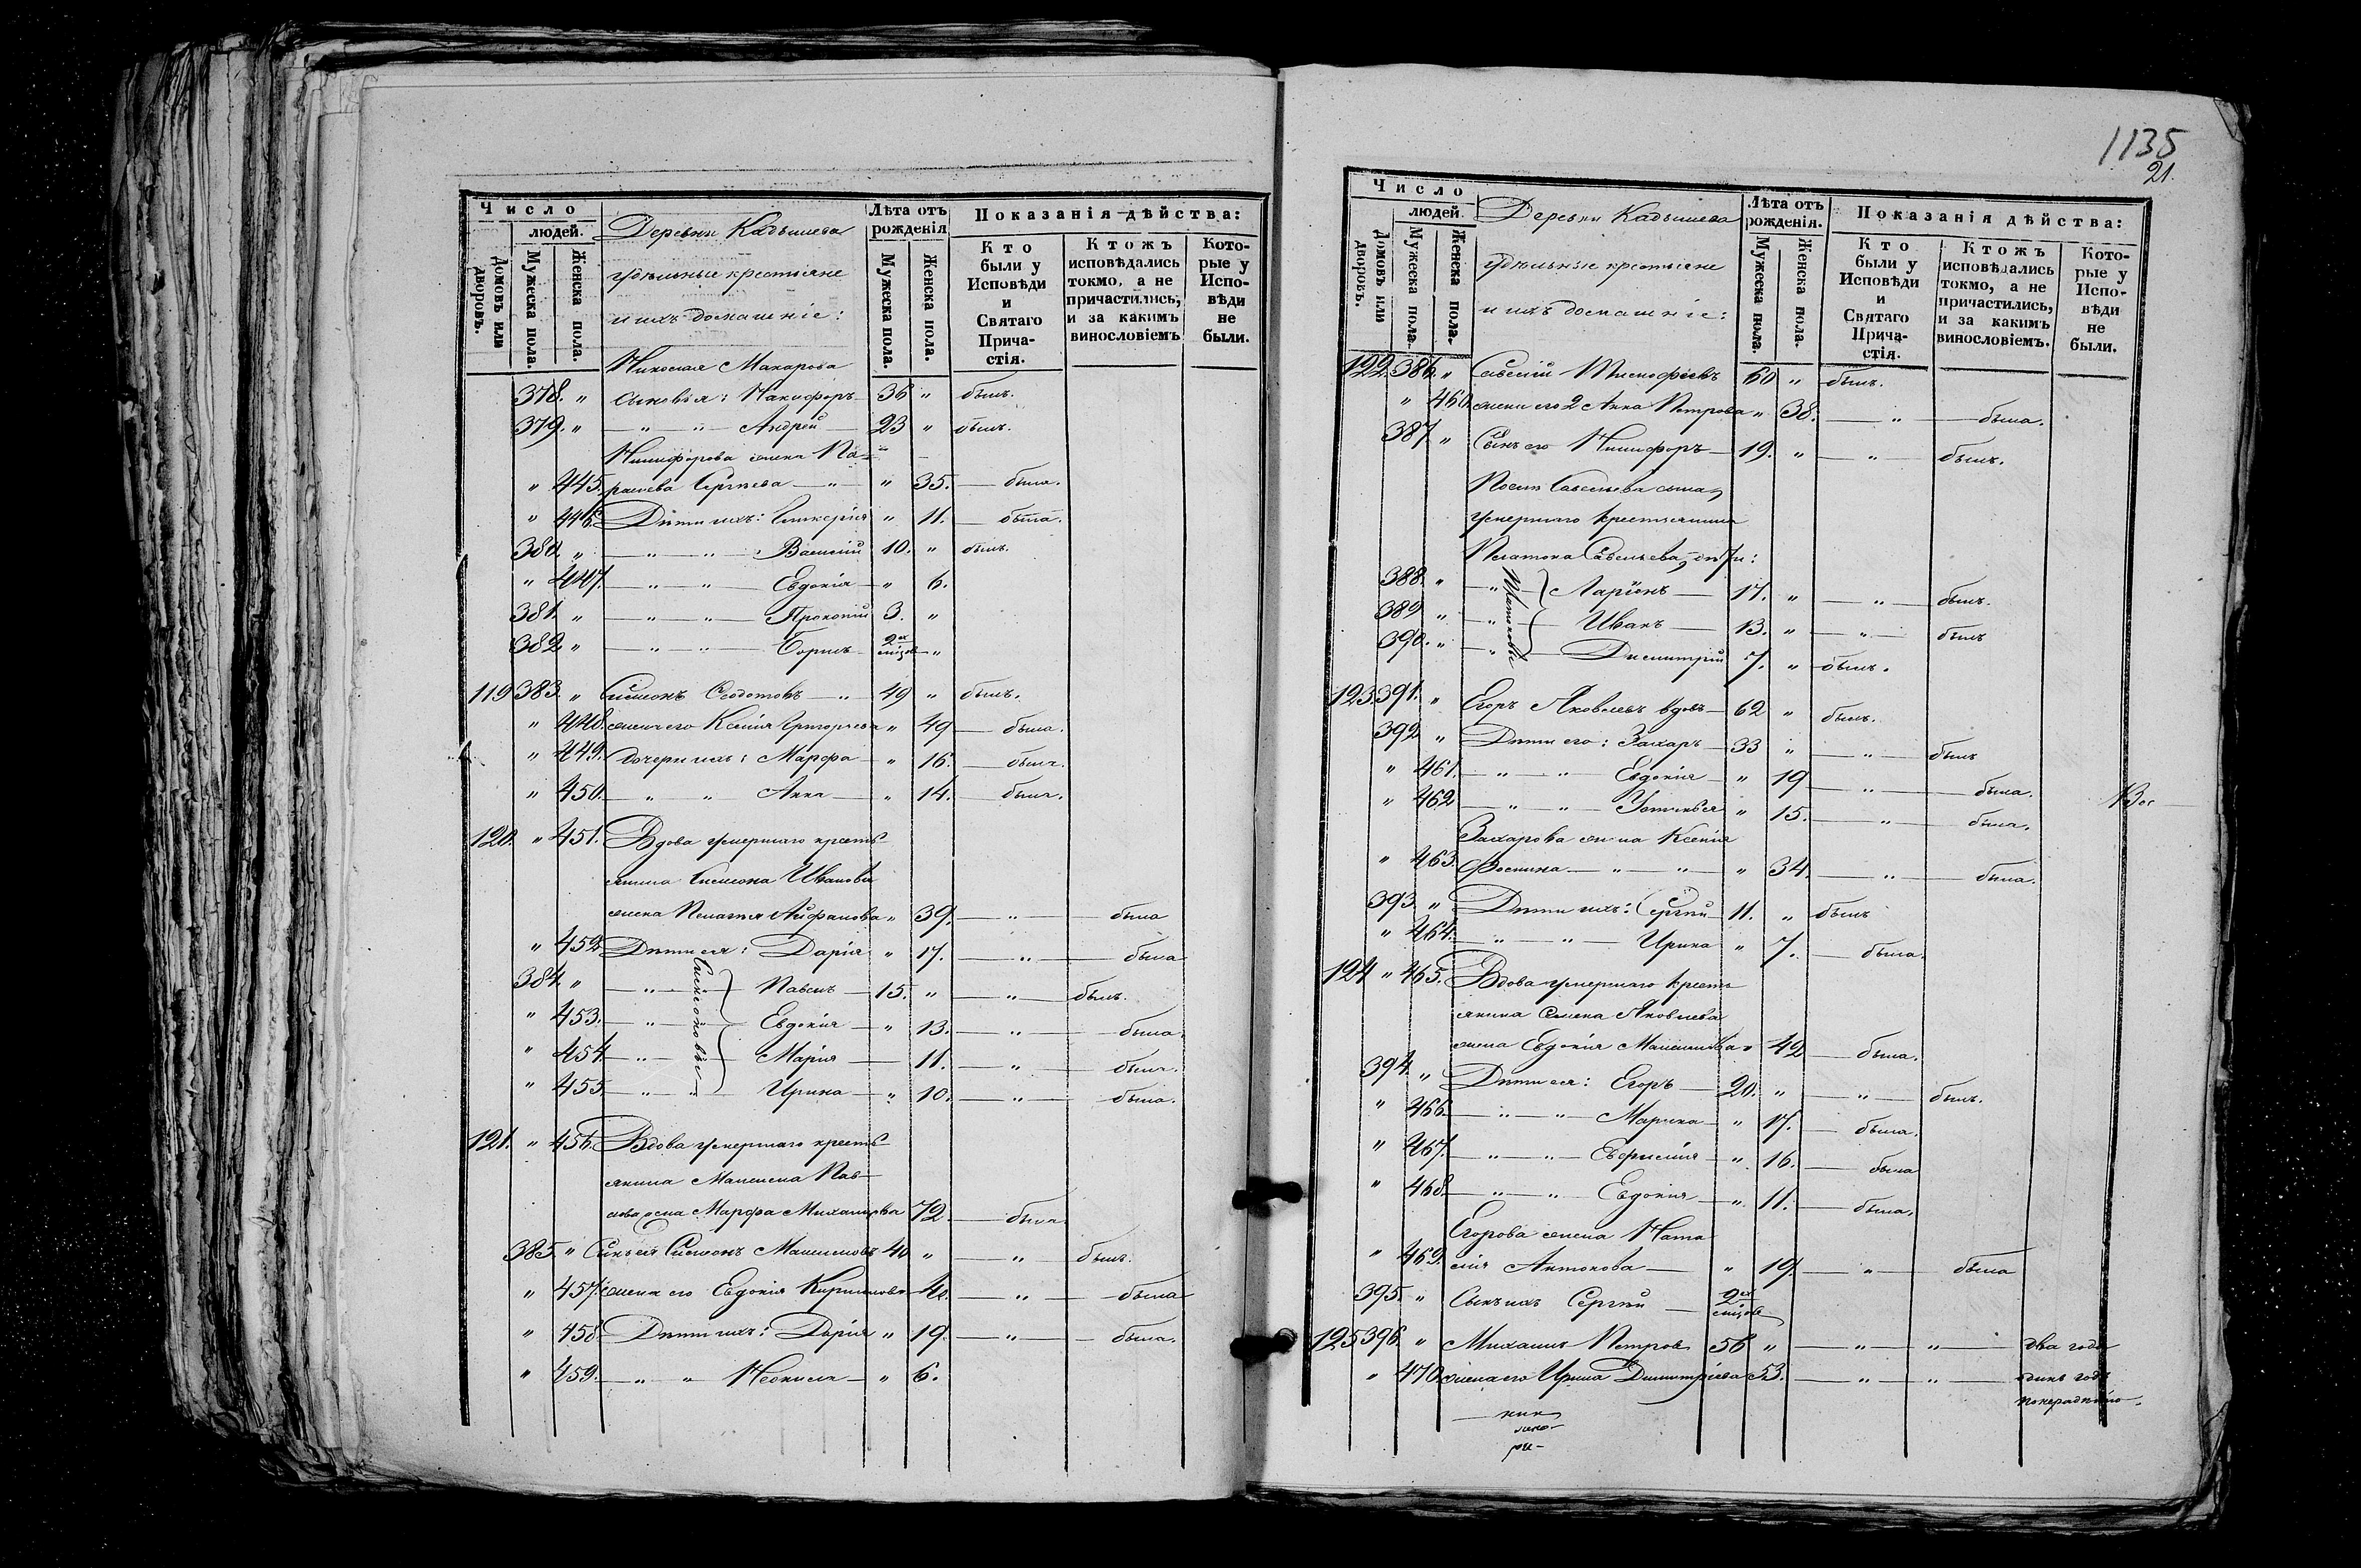 Число
людей.
Домовъ или дворовъ.
Мужеска пола.
Женска пола.
Деревни Кадышева
удѣльные крестьяне
и ихъ домашніе:
Лѣта отъ рожденія
Мужеска пола.
Женска пола.
Показанія дѣйства:
Кто были у Исповѣди и Святаго Причастія.
Ктожъ исповѣдались токмо, а не причастились, и за какимъ винословіемъ
Которые у Исповѣди не были.
Николая Макарова
378. " сыновья: Никифоръ 36 " былъ.
379. " — " — " — Андрей 23 " былъ.
Никифорова жена Па-
" 445. раскева Сергѣева — " — " 35. — была.
" 446. Дѣти ихъ: Гликерія " 11. — была.
380. " — " — " — Василій 10. " былъ.
" 447. — " — " — Евдокія — " 6.
381. " — " — " — Прокопій 3. "
382. " — " — " — Борисъ 2хъ мѣсяц. "
119 383. " Симеонъ Ѳеодотовъ — " 49 " былъ.
" 448. жена его Ксенія Григорьева " 49 — была.
" 449. дочери ихъ: Марфа — " 16. — была.
" 450. — " " Анна — " 14. — была.
120. " 451. Вдова умершаго кресть-
янина Симеона Иванова
жена Пелагея " 39. — " — была
" 452 Дѣти ея: Дарія " 17. — " — была
384. " — " — Павелъ — 15. " — " — былъ.
Симеоновы
" 453. — " — Евдокія — " 13. — " — была.
" 454. — " — Марія — 11. — " — была.
" 455. — " — " — Ирина — " 10. — " — была.
121. " 456. Вдова умершаго кресть-
янина Максима Пав-
лова жена Марфа Михайлова 72 — была
385. " Сынъ ея Симеонъ Максимовъ 40 " — " — былъ.
" 457. жена его Евдокія Кирилова 40. — " — была
" 458. Дѣти ихъ: Дарія " 19. — " — была.
" 459. — " " Неонила — " 6.
1135
21.
Число
людей.
Домовъ или дворовъ.
Мужеска пола.
Женска пола.
Деревни Кадышева
удѣльные крестьяне
и ихъ домашніе:
Лѣта отъ рожденія.
Мужеска пола.
Женска пола.
Показанія дѣйства:
Кто были у Исповѣди и Святаго Причастія.
Ктожъ исповѣдались токмо, а не причастились, и за какимъ винословіемъ.
Которые у Исповѣди не были.
122. 386. " Савелій Тимофѣевъ 60 " былъ.
" 460. жена его 2 Анна Петрова " 38. — " — была.
387 " Сынъ его Никифоръ — 19. " — " — былъ.
Савельева сына,
умершаго крестьянина
Платона Савельева, дѣти:
388. " — " — Ларіонъ — 17. " — " — былъ.
Платоновы
389 " — " — Иванъ — 13. " — " — былъ
390. " — " — Димитрій 7. " — былъ.
123. 391. " Егоръ Яковлевъ вдовъ — 62 " былъ.
392 " Дѣти его: Захаръ — 33 " — " — былъ
" 461. — " — " Евдокія — " 19 — " — была.
" 462 — " — " — Устинья " 15. — " — была.
Захарова жена Ксенія
" 463. Фокина — " — " — " 34. — " — была.
393 " Дѣти ихъ: Сергѣй — 11. " былъ
" 464. — " — " — Ирина " 7. — была.
124 " 465. Вдова умершаго кресть
янина Семена Яковлева
жена Евдокія " 42 — была.
394. " Дѣти ея: Егоръ — 20. " — " — былъ.
" 466. — " — " — Марина — " 17. — была.
" 467. — " — " — Евфимія — " 16. — была
" 468. — " — " Евдокія — " 11. — была.
Егорова жена Ната
" 469. лія Антонова — " 19. — " — была
395. " Сынъ ихъ Сергѣй — 2хъ мѣсяц.
125 396. " Михаилъ Петровъ 56 " — " — " — два года
" 470. жена его Ирина Димитріева 53. — " — " — одинъ годъ
по нерадѣнію.